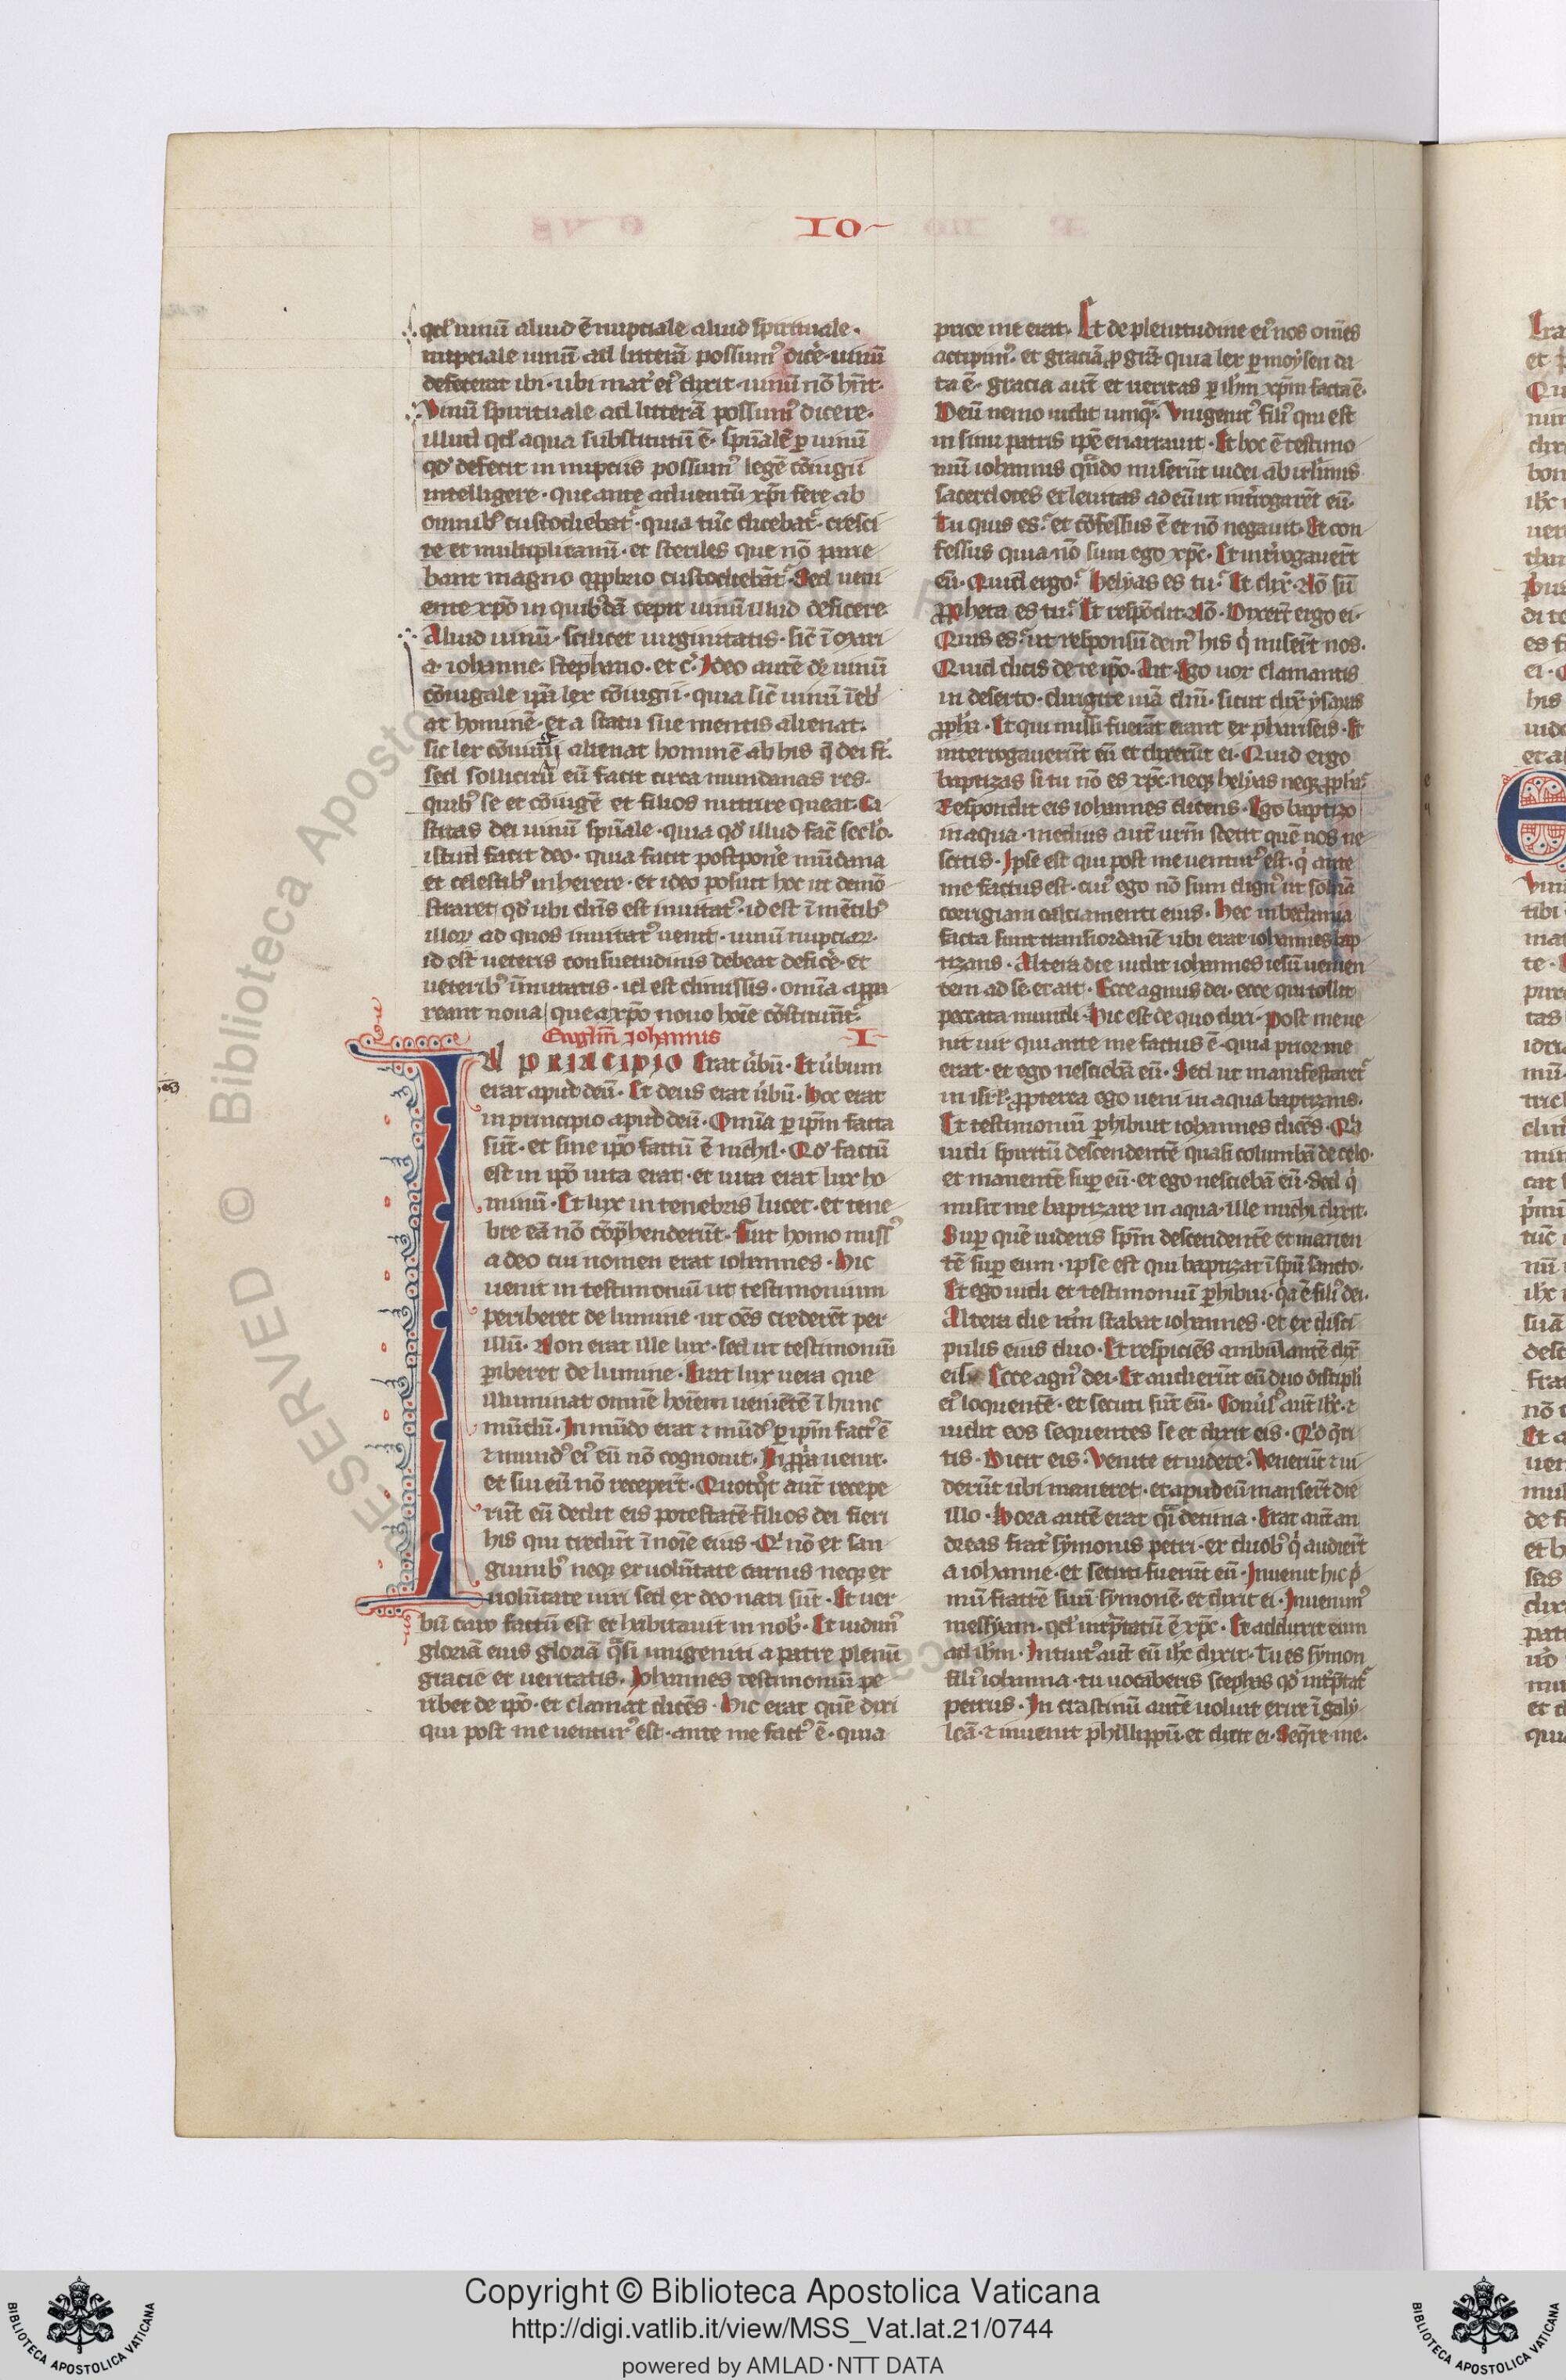 IO
qd' uinū aliud ē nuptiale aliud spirituale.
nuptiale uinū ad litterā possum9 dicē. uinū
defecerat ibi. ubi mat' ei9 dixit. uinū nō hn̄t.
Vinū spirituale ad litterā possum9 dicere.
illud qd' aqua substitutū ē. spūale p uinū
qd' defecit in nuptiis possum9 legē ꝯiugii
intelligere. que ante aduentū xp̄i fere ab
omnib9 custodiebat᷑. quia tūc dicebat᷑. cresci
te et multiplicamī. et steriles que nō parie
bant magno opprobrio custodiebāt᷑. Sed ueni
ente xp̄o in quib9dā cepit uinū illud deficere
Aliud uinū. scilicet uirginitatis. sic̄ ī mari
a. iohanne. stephano. et c'. Ideo autē dr̄ uinū
cōiugale ip̄a lex cōiugii. quia sic̄ uinū īeb'
at hominē. et a statu sue mentis alienat.
sic lex cōiugii alienat hominē ab his q̄ dei st̄.
sed sollicitū eū facit circa mundanas res.
quib9 se et cōiugē et filios nutrire queat. Ca
stitas dei uinū spūale. quia qd' illud fac̄ sec̄lo.
istud facit deo. quia facit postponē mūdana
et celestib9 inherere. et ideo posuit hoc ut demō
straret qd' ubi dn̄s est inuitat9. id est ī mētib9
illoꝝ ad quos inuitat9 uenit. uinū nuptiaꝝ.
id est ueteris consuetudinis debeat deficē. et
ueterib9 īmutatis. id est dimissis. om̄ia appa
reant noua que a xp̄o nouo hoīe cōstituūt᷑.
Euglm̄ Iohannis I
IN PRINCIPIO Erat ūbū. Et ūbum
erat apud deū. Et deus erat ūbū. Hoc erat
in principio apud deū. Omīa p ip̄m facta
sūt. et sine ip̄o factū ē nichil. Qd' factū
est in ip̄o uita erat. et uita erat lux ho
minū. Et lux in tenebris lucet. et tene
bre eā nō cōp̄henderūt. Fuit homo miss9
a deo cui nomen erat iohannes. Hic
uenit in testimoniū ut testimonium
perhiberet de lumine. ut oēs crederēt per
illū. Non erat ille lux. sed ut testimoniū
phiberet de lumine. Erat lux uera que
illuminat omnē hoīem ueniētē ī hunc
mūdū. In mūdo erat ⁊ mūd9 p ip̄m fact9 ē
⁊ mund9 ei9 eū nō cognouit. In pp̄a uenit.
et sui eū nō receperūt. Quotqt aūt recepe
rūt eū dedit eis potestatē filios dei fieri
his qui credūt ī noīe eius. Qi nō ex san
guinib9 neqꝫ ex uolūtate carnis neqꝫ ex
uolūtate uiri sed ex deo nati sūt. Et uer
bū caro factū est et habitauit in nob'. Et uidim9
gloriā eius gloriā q̄si unigeniti a patre plenū
gracie et ueritatis. Iohannes testimoniū pe
ribet de ip̄o. et clamat dicēs. Hic erat quē dixi
qui post me uentur9 est. ante me fact9 ē. quia
prior me erat. Et de plenitudine ei9 nos omēs
accipim9. et graciā p grā. quia lex p moysen da
ta ē. gracia aūt et ueritas p ihm̄ xp̄m facta ē.
Deū nemo uidit unqꝫ. Vnigenit9 fili9 qui est
in sinu patris ip̄e enarrauit. Et hoc ē testimo
niū iohannis qn̄do miserūt iudei ab irl̄imis
sacerdotes et leuitas ad eū ut int'rogarēt eū.
Tu quis es. et cōfessus ē et nō negauit. Et con
fessus quia nō sum ego xp̄c. Et int'rogauerūt
eū. Quid ergo. Helyas es tu. Et dix̄. Nō sū
ppheta es tu. Et respōdit. Nō. Dixerūt ergo ei.
Quis es. ut responsū dem9 his q' miserūt nos.
Quid dicis de te ip̄o. Ait. Ego uox clamantis
in deserto. dirigite uiā dn̄i. sicut dix̄ ysayas
ppha. Et qui missi fuerāt erant ex phariseis. Et
interrogauerūt eū et dixerūt ei. Quid ergo
baptizas si tu nō es xp̄c. neqꝫ helyas neqꝫ ppha.
Respondit eis iohannes dicens. Ego baptizo
in aqua. medius aūt ur̄m stetit quē nos ne
scitis. Ipse est qui post me uentur9 est. q' ante
me factus est. cui9 ego nō sum dign9 ut soluā
corrigiam calciamenti eius. Hec in bethania
facta sunt trans iordanē ubi erat iohannes bap
tizans. Altera die uidit iohannes iesū uenien
tem ad se. et ait. Ecce agnus dei. ecce qui tollit
peccata mundi. Hic est de quo dixi. Post me ue
nit uir qui ante me factus ē. quia prior me
erat. et ego nesciebā eū. Sed ut manifestaret᷑
in isr̄l. ppterea ego ueni in aqua baptizans.
Et testimoniū phibuit iohannes dicēs. Qa
uidi spiritū descendentē quasi columbā de celo.
et manentē sup eū. et ego nesciebā eū. Sed q'
misit me baptizare in aqua. ille michi dixit.
Sup quē uideris sp̄m descendentē et manen
tē sup eum. ipse est qui baptizat ī spū sancto.
Et ego uidi et testimoniū phibui. qa ē fili9 dei.
Altera die it'm stabat iohannes. et ex disci
pulis eius duo. Et respiciēs ambulantē dix̄
eis. Ecce agn9 dei. Et audierūt eū duo discipli
ei9 loquentē. et secuti sūt eū. Conūs9 aūt ihc̄. ⁊
uidit eos sequentes se et dixit eis. Qd' q̄ri
tis. Dicit eis. Venite et uidete. Venerūt ⁊ ui
derūt ubi maneret. et apud eū manserūt die
illo. Hora autē erat q̄i decima. Erat aūt an
dreas frat' symonis petri. ex duob9 q' audierūt
a iohanne. et secuti fuerūt eū. Inuenit hic p'
mū fratrē suū symonē. et dixit ei. Inuenim9
messyam. qd' int'p̄tatū ē xp̄c. Et adduxit eum
ad ihm̄. Intuit9 aūt eū ihc̄ dixit. Tu es symon
fili9 iohanna. tu uocaberis cephas qd' int'p̄tat᷑
petrus. In crastinū autē uoluit exire ī galy
leā. ⁊ inuenit phillippū. et dicit ei. Seq̄re me.
Copyright © Biblioteca Apostolica Vaticana
http://digi.vatlib.it/view/MSS_Vat.lat.21/0744
powered by AMLAD·NTT DATA
BIBLIOTECA APOSTOLICA VATICANA
BIBLIOTECA APOSTOLICA VATICANA